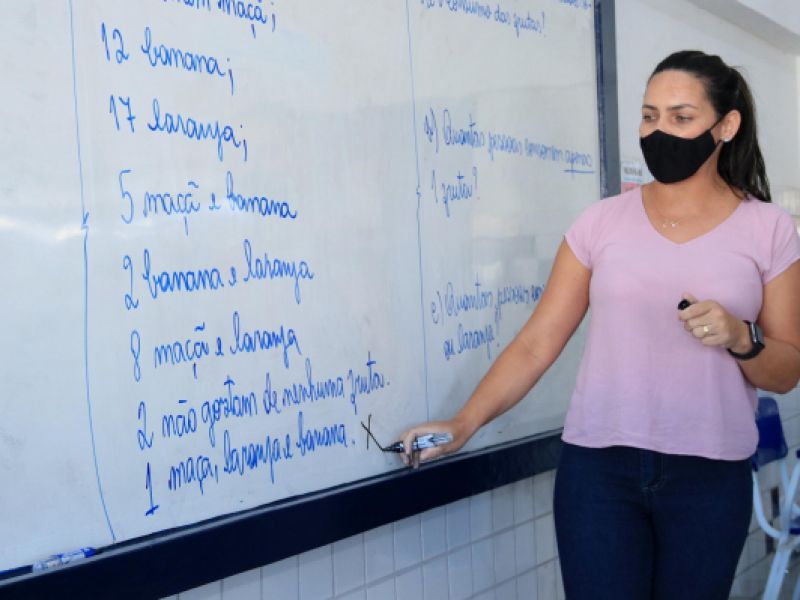 maçã;
12 banana;
17 laranja;
5 maçã e banana
2 banana e laranja
8 maçã e laranja
2 não gostam de nenhuma fruta.
1 maça, laranja e banana. X
consumo das frutas?
b) Quantas pessoas consomem apenas
1 fruta?
c) Quantas pessoas
ou laranja?